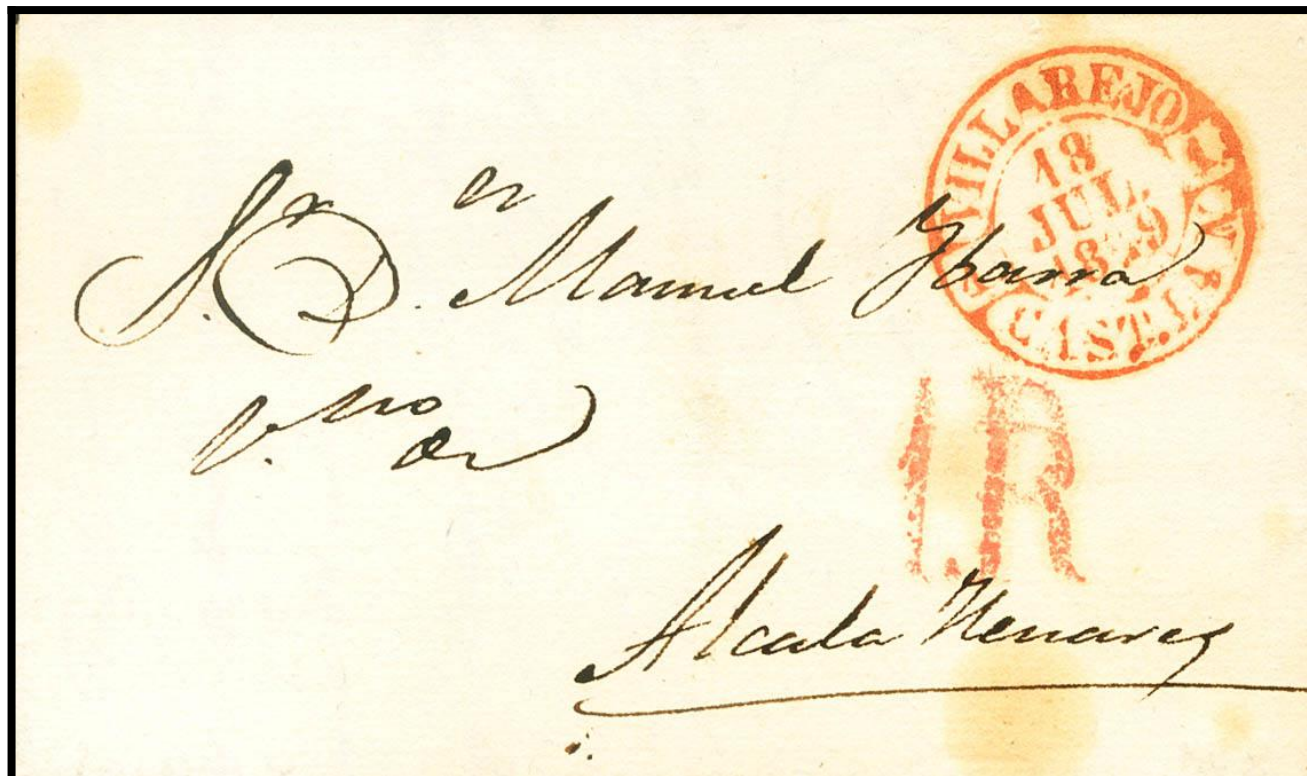 VILLAREJO
18
JUL.
CAST.
Sr. D. Manuel Ybarra
V.no de
1.R
Alcala Henares